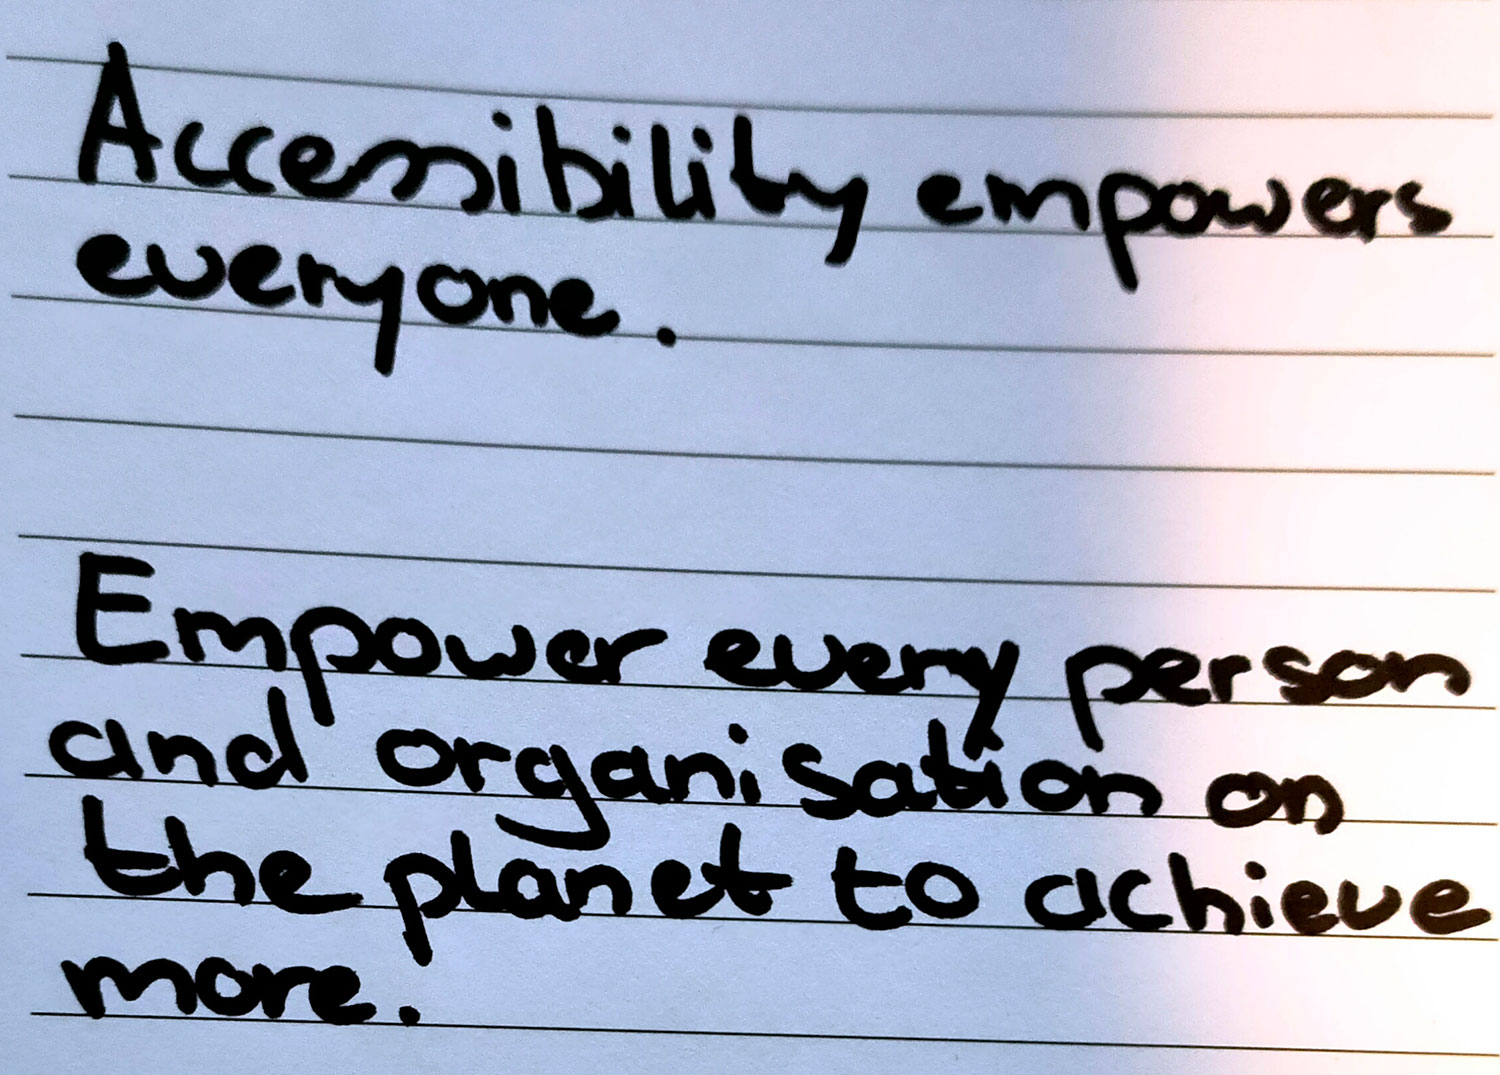 Accessibility empowers
everyone.
Empower every person
and organisation on
the planet to achieve
more.